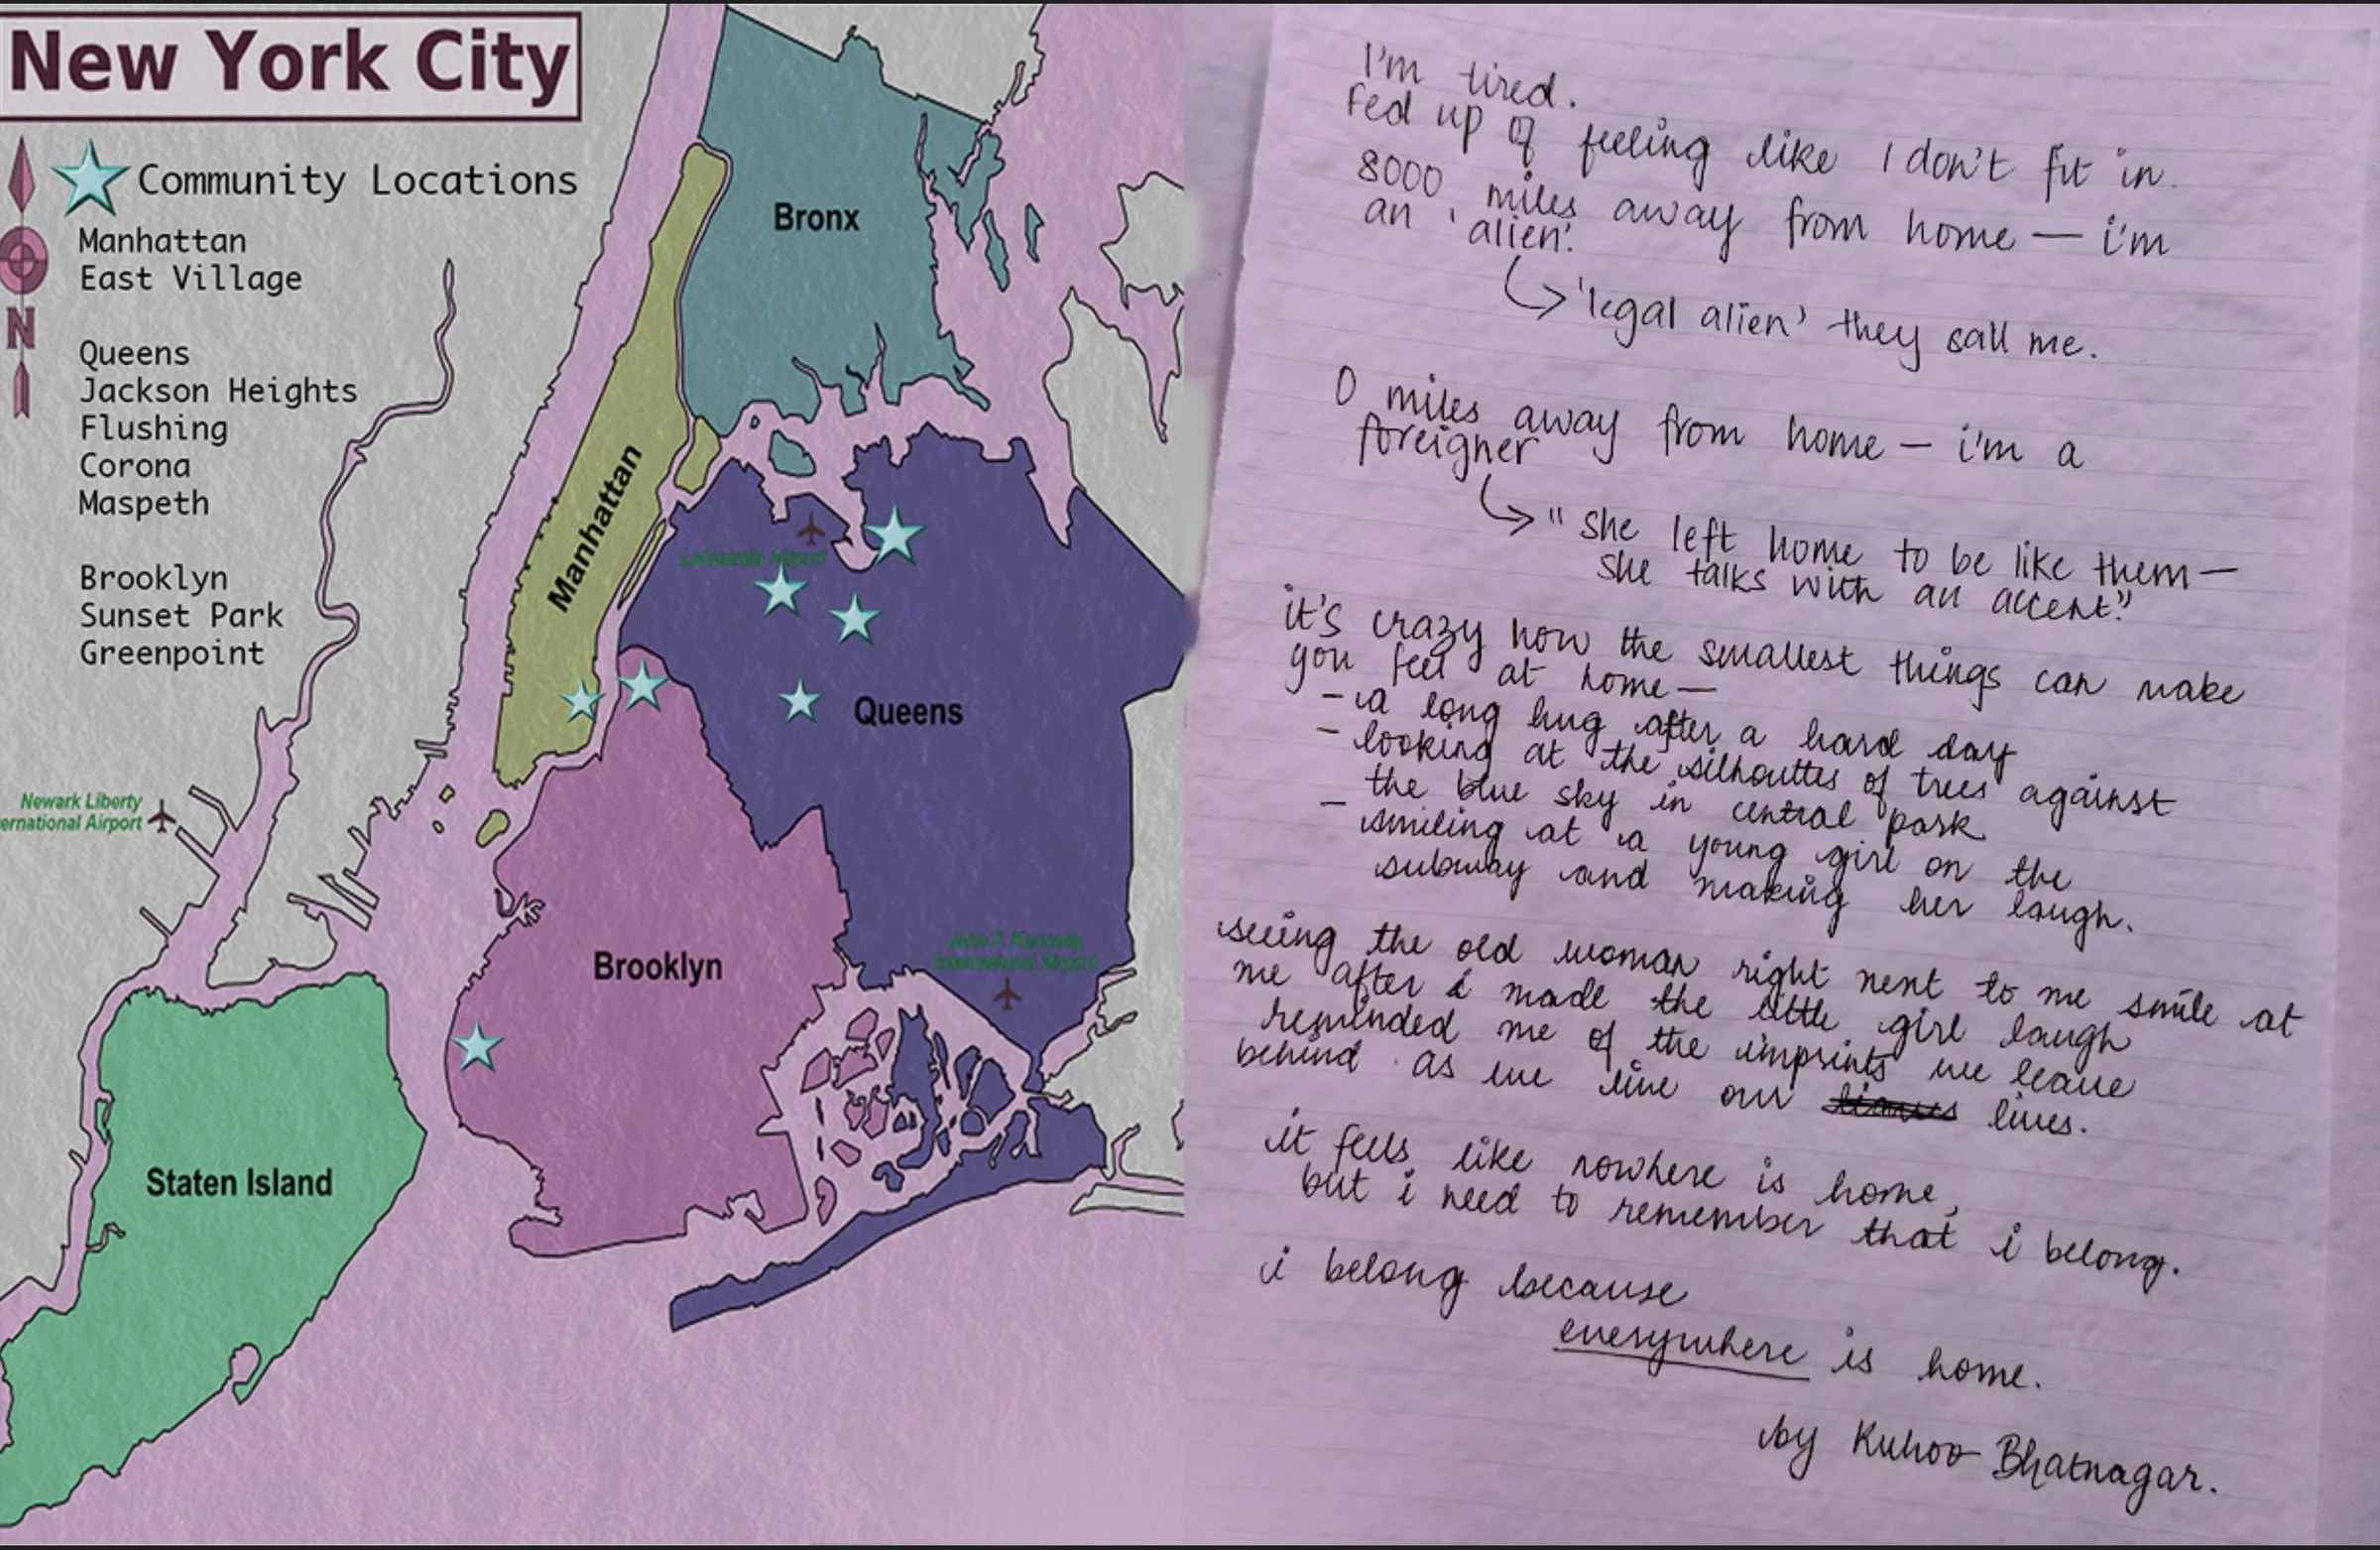 New York City
Community Locations
Manhattan
East Village
N
Queens
Jackson Heights
Flushing
Corona
Maspeth
Brooklyn
Sunset Park
Greenpoint
Bronx
Manhattan
LaGuardia Airport
Queens
Newark Liberty
ernational Airport
Brooklyn
John F. Kennedy
International Airport
Staten Island
I'm tired.
Fed up of feeling like I don't fit in.
8000 miles away from home — i'm
an 'alien'.
'legal alien' they call me.
0 miles away from home — i'm a
foreigner
"she left home to be like them —
she talks with an accent"
it's crazy how the smallest things can make
you feel at home —
- a long hug after a hard day
- looking at the silhouttes of trees against
the blue sky in central park
- smiling at a young girl on the
subway and making her laugh.
seeing the old woman right next to me smile at
me after i made the little girl laugh
reminded me of the imprints we leave
behind as we live our lives.
it feels like nowhere is home,
but i need to remember that i belong.
i belong because
everywhere is home.
by Kuhoo Bhatnagar.